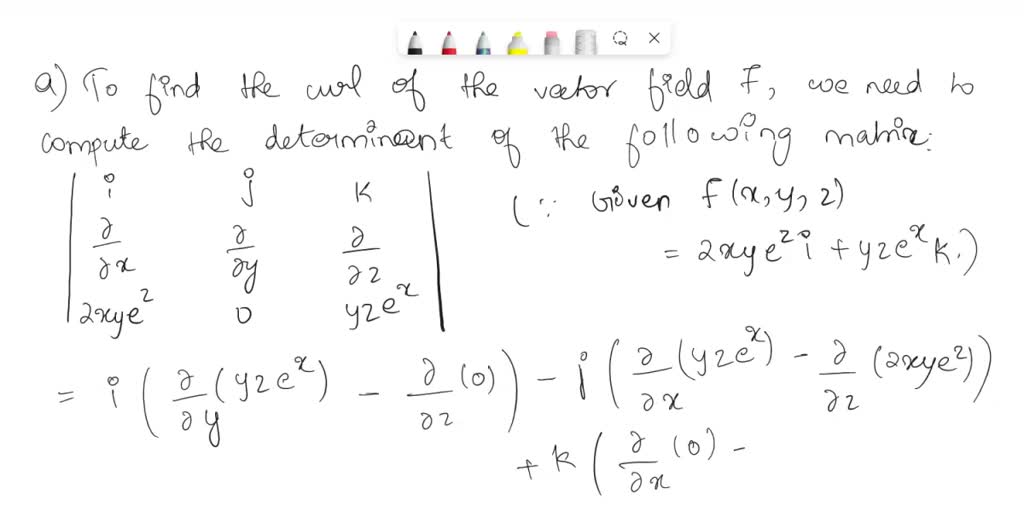 a) To find the curl of the vector field F, we need to
compute the determinant of the following matrix:
| i j k |
| ∂/∂x ∂/∂y ∂/∂z |
| 2xye^z 0 yze^x |
(∵ Given F(x, y, z)
= 2xye^z i + yze^x k.)
= i ( ∂/∂y (yze^x) - ∂/∂z (0) ) - j ( ∂/∂x (yze^x) - ∂/∂z (2xye^z) )
+ k ( ∂/∂x (0) -